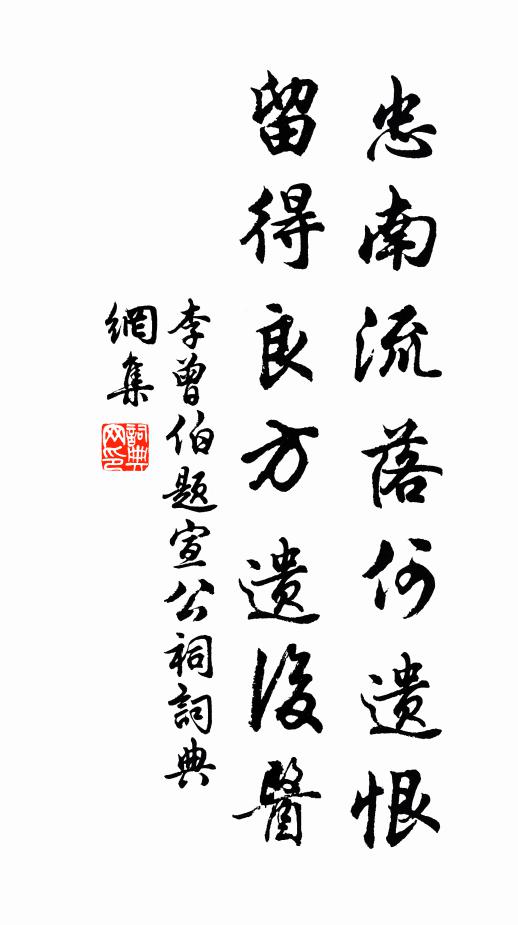 忠南流落何遗恨
留得良方遗後醫
李曾伯題宣公祠詞典
網集
詞典網印